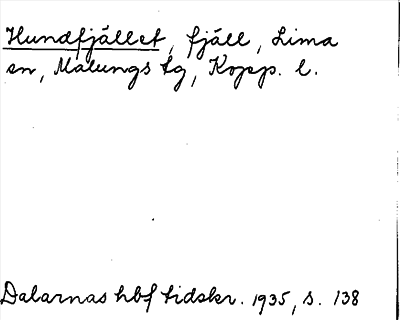 Hundfjället, fjäll, Lima
sn, Malungs tg, Kopp. l.
Dalarnas hbf tidskr. 1935, s. 138